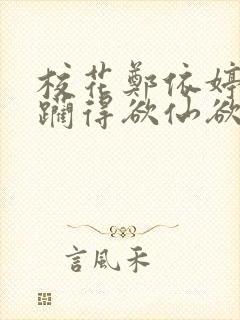 校花鄭依婷
躙得欲仙欲
言風禾